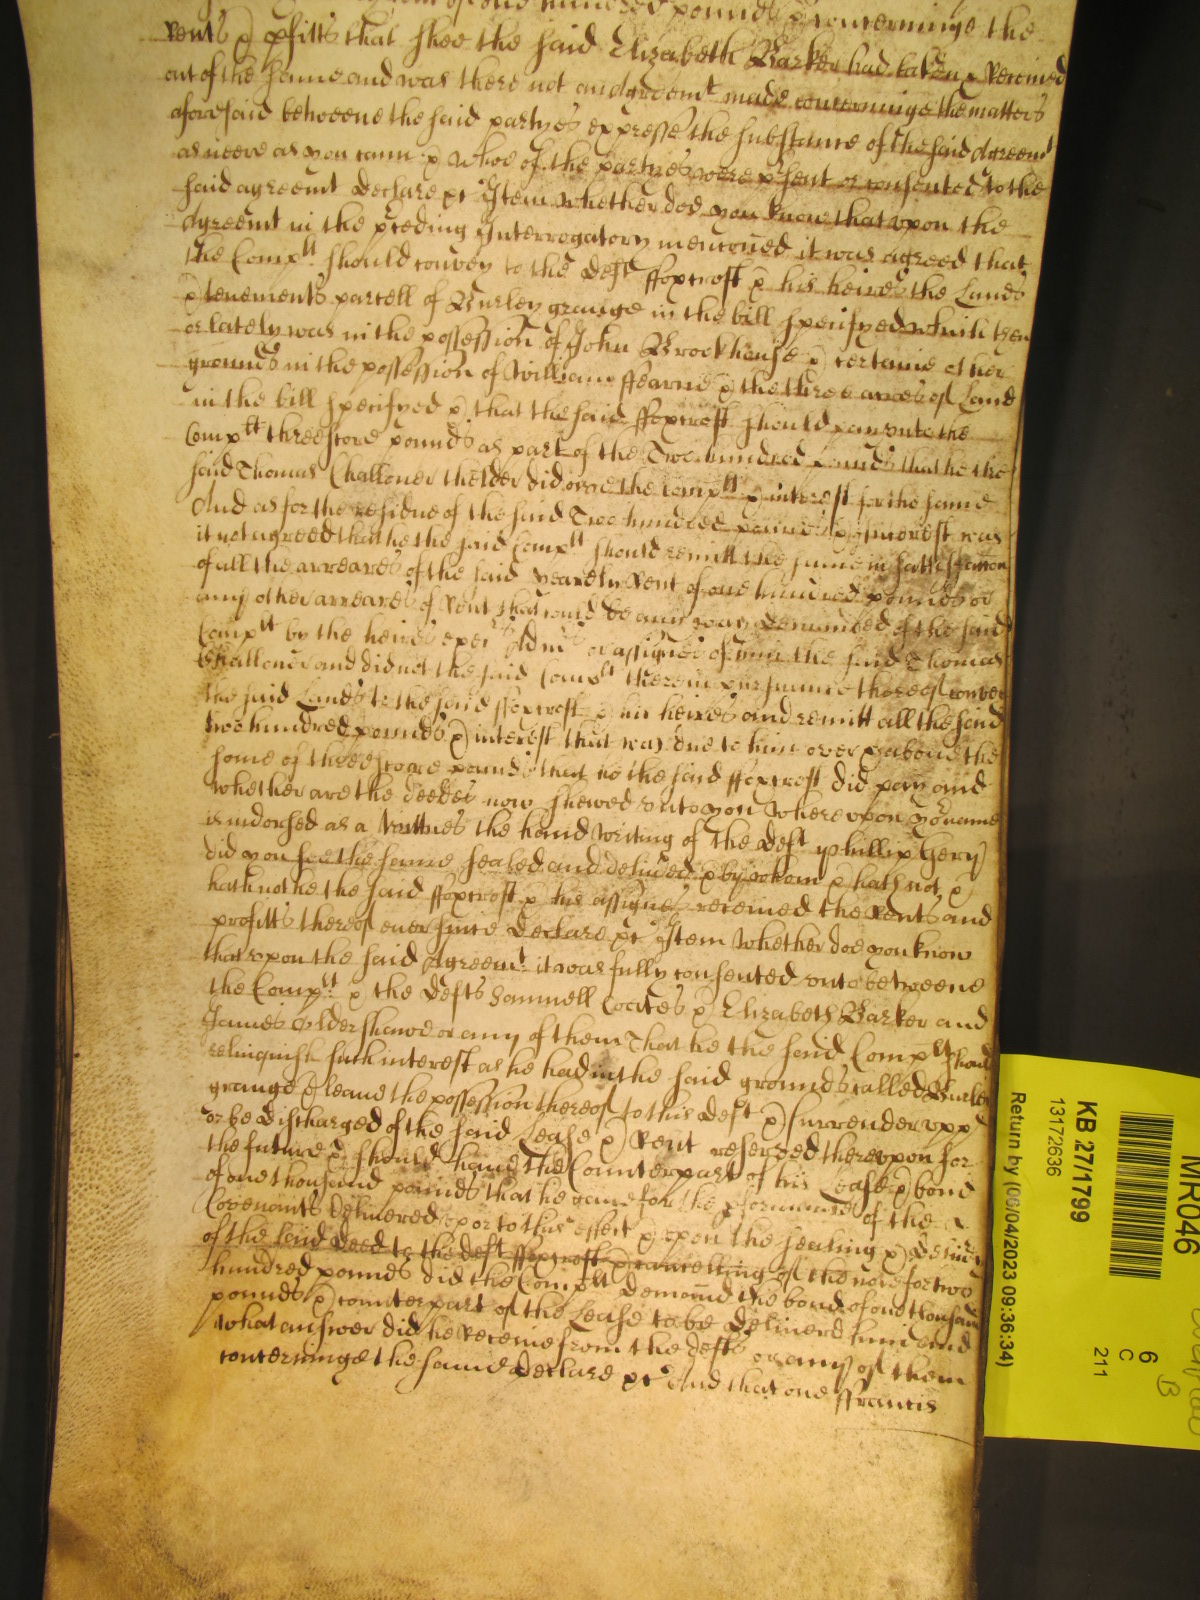 hundred pounds & concerninge the
Rents & pfitts that shee the said Elizabeth Barker had taken & Received
out of the same and was there not an Agreemt made concerninge the matters
aforesaid betweene the said partyes expresse the substance of the said Agreemt
as neere as you cann & whoe of the partyes were psent or consented to the
said agreemt Declare &c Item whether doe you know that upon the
Agreemt in the pceding Interrogatory menconed it was agreed that
the Complt should convey to the Deft ffoxcroft & his heires the Lands
& tenements parcell of Burley grange in the bill specifyed which then
or lately was in the possession of John Brookhouse & certaine other
grounds in the possession of William ffearne & the three acres of Land
in the bill specifyed & that the said ffoxcroft should pay unto the
Complt threescore pounds as part of the Two hundred pounds that he the
said Thomas Challoner thelder did owe the Complt & interest for the same
And as for the residue of the said Two hundred pounds & interest was
it not agreed that he the said Complt should remitt the same in sattisfaccon
of all the arreares of the said yearely Rent of one hundred pounds or
any other arreares of Rent that could be any way demanded of the said
Complt by the heires exers Admrs or assignes of him the said Thomas
Challoner and did not the said Complt therein pursuance thereof convey
the said Lands to the said ffoxcroft & his heires and remitt all the said
two hundred pounds & interest that was due to him over & above the
some of threescore pounds that he the said ffoxcroft did pay and
whether are the deedes now shewed unto you whereupon yor name
is indorsed as a wittnes the hand writing of the Deft Phillipp Gery
did you see the same sealed and delived & by whom & hath not &
hath not he the said ffoxcroft & his assignes received the Rents and
profitts thereof ever since Declare &c Item whether doe you know
that upon the said Agreemt it was fully consented unto betweene
the Complt & the Defts Samuell Coates & Elizabeth Barker and
James Oldershawe or any of them That he the said Complt should
relinquish such interest as he had in the said grounds called Burley
grange & leave the possession thereof to this Deft & surrender upp
or be discharged of the said Lease & Rent reserved thereupon for
the future & should have the Counterpart of his Lease & bond
of one thousand pounds that he gave for the pformance of the
Covenants delivered up or to this effect & upon the sealing &
of the said Deed to the Deft ffoxcroft & cancelling of the note for two
hundred pounds did the Complt demand the bond of one thousand
pounds & counterpart of the Lease to be delivered him and
what answer did he Receive from the Defts or any of them
concerninge the same Declare &c And that one ffrancis
MR046
KB 27/1799
13172636
Return by (06/04/2023 09:36:34)
6
C
211
B